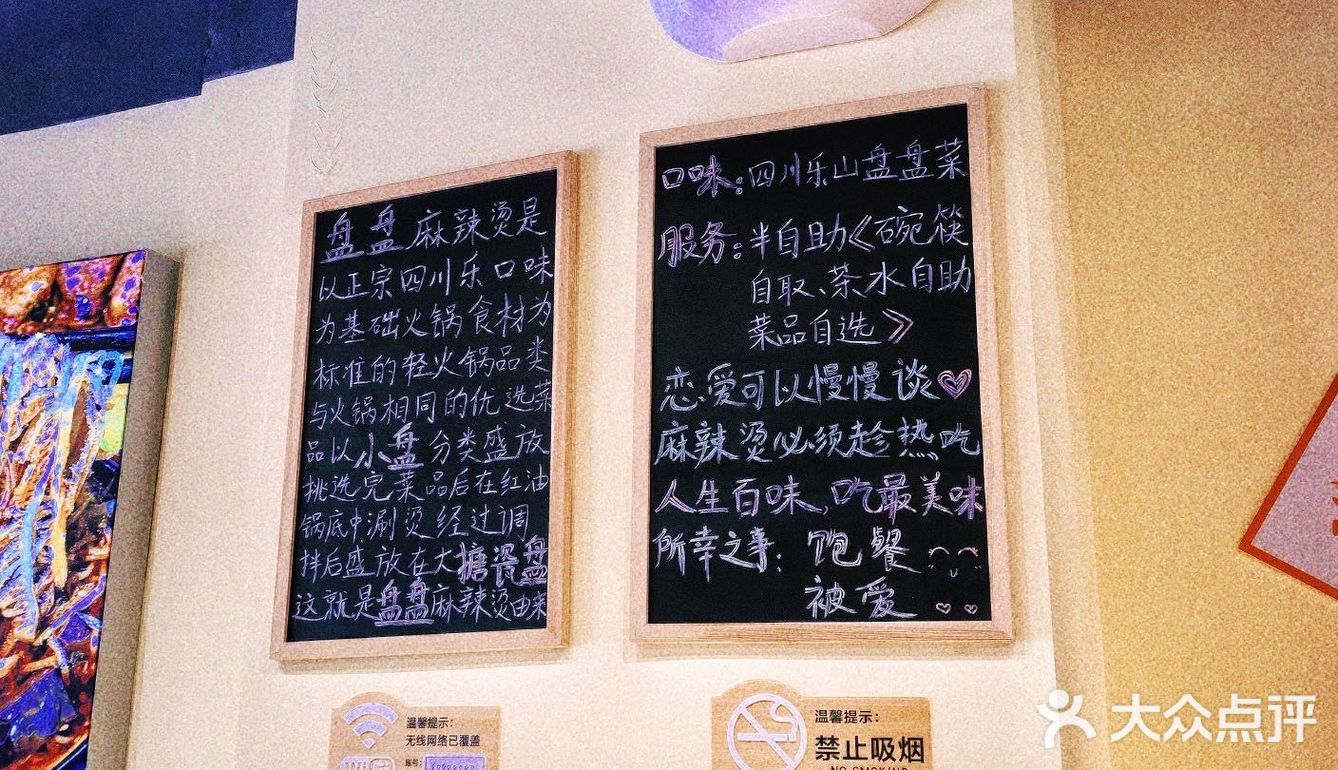 盘盘麻辣烫是
以正宗四川乐口味
为基础火锅食材为
标准的轻火锅品类
与火锅相同的优选菜
品以小盘分类盛放
挑选完菜品后在红油
锅底中涮烫经过调
拌后盛放在大搪瓷盘
这就是盘盘麻辣烫由来
口味:四川乐山盘盘菜
服务:半自助《碗筷
自取、茶水自助
菜品自选》
恋爱可以慢慢谈
麻辣烫必须趁热吃
人生百味,吃最美味
所幸之事:饱餐
被爱
温馨提示:
无线网络已覆盖
账号:
温馨提示:
禁止吸烟
NO SMOKING
大众点评